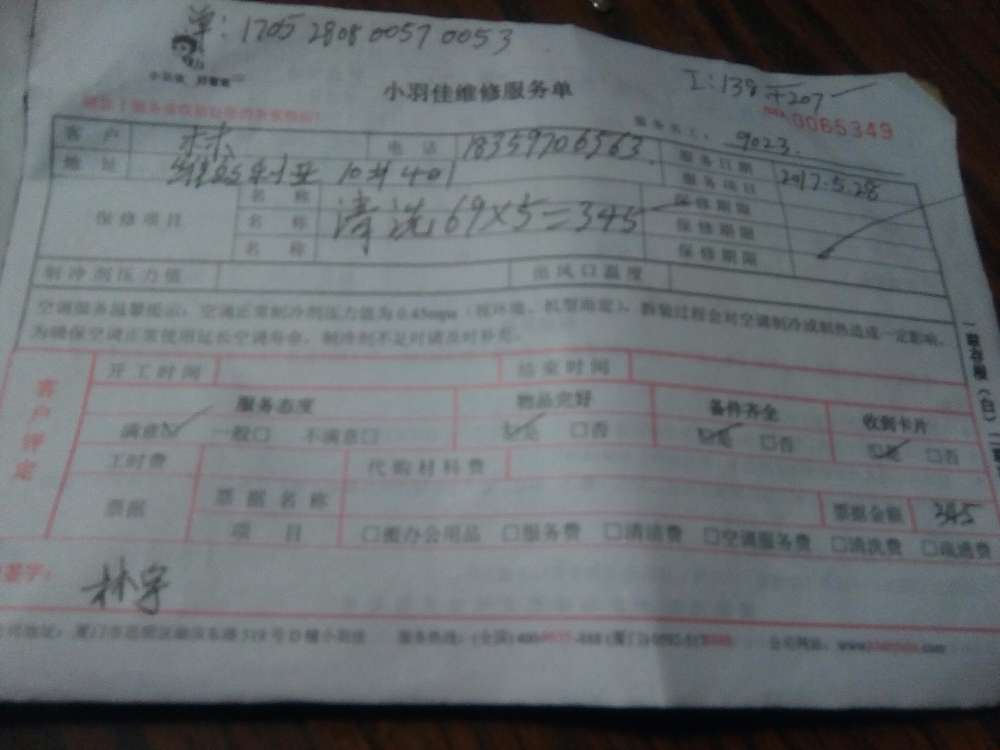 单: 1705 2808 0057 0053
小羽佳维修服务单
0065349
服务员工: 9023
客户 林 电话 18359706563 服务日期 2017.5.28
地址 10# 401 服务项目
保修项目 名称 清洗 69×5=345 保修期限
名称 保修期限
名称 保修期限
制冷剂压力值 出风口温度
空调服务温馨提示: 空调正常制冷剂压力值为0.45mpa (视环境、机型而定), 拆装过程会对空调制冷或制热造成一定影响,
为确保空调正常使用延长空调寿命, 制冷剂不足时请及时补充。
客户评定
开工时间 结束时间
服务态度 物品完好 备件齐全 收到卡片
满意☑ 一般□ 不满意□ ☑是 □否 ☑是 □否 ☑是 □否
工时费 代购材料费
票据 票据名称 票据金额 345
项目 □搬办公用品 □服务费 □清洁费 □空调服务费 □清洗费 □疏通费
签字: 林宇
公司地址: 厦门市思明区 号D幢小羽佳 服务热线: (全国) 公司网址: